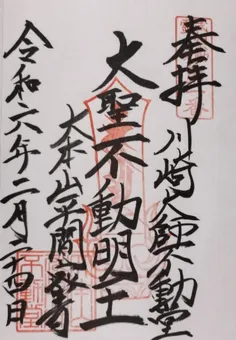 奉拝
川崎大師不動堂
大聖不動明王
大本山平間寺
令和六年二月二十四日